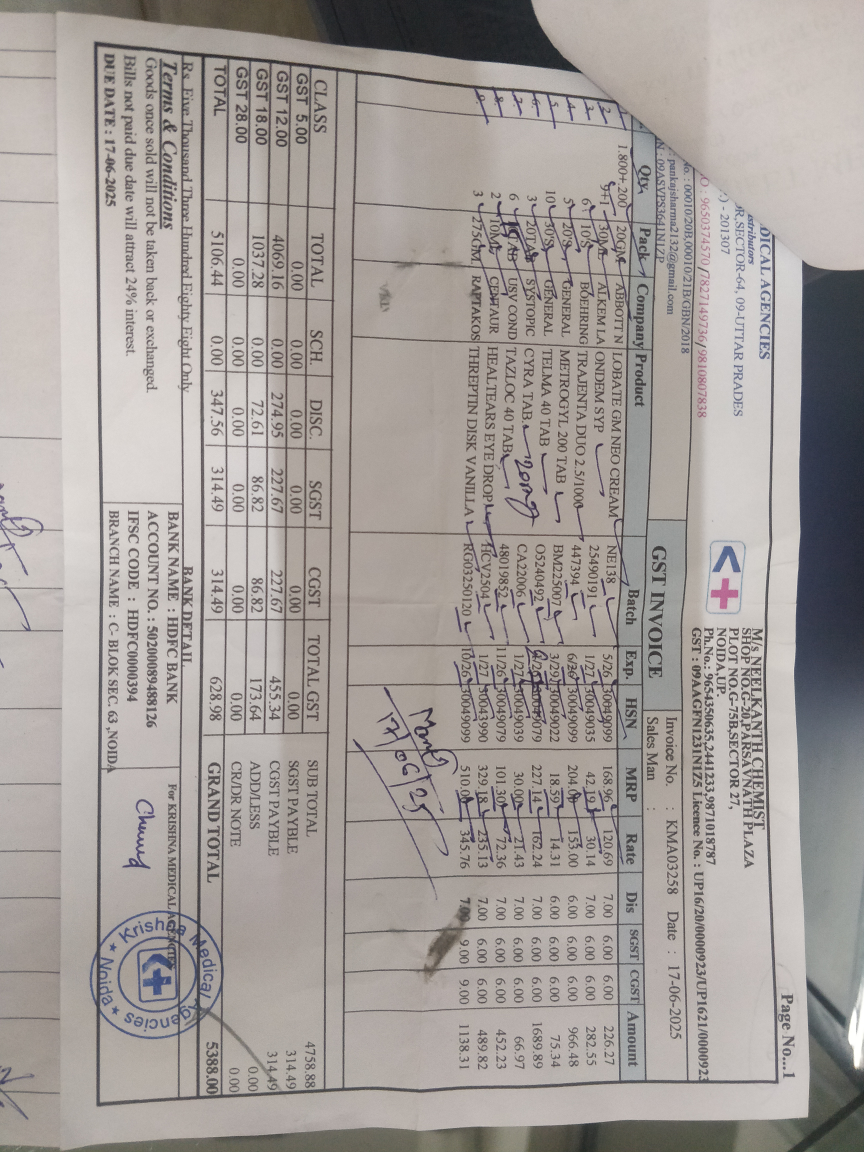 Page No...1
DICAL AGENCIES
OR,SECTOR-64, 09-UTTAR PRADES
- 201307
9650374570 /7827149736/9810807838
00010/20B,00010/21B/GBN/2018
pankajsharma2132@gmail.com
N : 09ASVPS3641N1ZP
M/s NEELKANTH CHEMIST
SHOP NO.G-20,PARSAVNATH PLAZA
PLOT NO.G-75B,SECTOR 27,
NOIDA,UP.
Ph.No.: 9654350635,2441233,9871018787
GST : 09AAGFN1231N1Z5 Licence No. : UP16/20/0000923/UP1621/0000923
GST INVOICE
Invoice No. : KMA03258 Date : 17-06-2025
Sales Man :
Qty. Pack Company Product Batch Exp. HSN MRP Rate Dis SGST CGST Amount
1. 1.800+.200 20GM ABBOTT N LOBATE GM NEO CREAM NE138 5/26 30049099 168.96 120.69 7.00 6.00 6.00 226.27
2. 9+1 30ML ALKEM LA ONDEM SYP 25490191 1/27 30049035 42.19 30.14 7.00 6.00 6.00 282.55
3. 6 10'S BOEHRING TRAJENTA DUO 2.5/1000 447394 6/26 30049099 204.00 153.00 6.00 6.00 966.48
4. 5 20'S GENERAL METROGYL 200 TAB BM225007 3/29 30049022 18.59 14.31 6.00 6.00 6.00 75.34
5. 10 30'S GENERAL TELMA 40 TAB O5240492 30049079 227.14 162.24 7.00 6.00 6.00 1689.89
6. 3 20TAB SYSTOPIC CYRA TAB 20mg CA22006 1/27 30049039 30.00 21.43 7.00 6.00 6.00 66.97
7. 6 USV COND TAZLOC 40 TAB 48019852 11/26 30049079 101.30 72.36 7.00 6.00 6.00 452.23
8. 2 10ML CENTAUR HEALTEARS EYE DROP HCV2504 1/27 30043990 329.18 235.13 7.00 6.00 6.00 489.82
9. 3 275GM RAPTAKOS THREPTIN DISK VANILLA RG03250120 10/26 30049099 510.00 345.76 7.00 9.00 9.00 1138.31
17/06/25
CLASS TOTAL SCH. DISC. SGST CGST TOTAL GST
GST 5.00 0.00 0.00 0.00 0.00 0.00 0.00
GST 12.00 4069.16 0.00 274.95 227.67 227.67 455.34
GST 18.00 1037.28 0.00 72.61 86.82 86.82 173.64
GST 28.00 0.00 0.00 0.00 0.00 0.00 0.00
TOTAL 5106.44 0.00 347.56 314.49 314.49 628.98
SUB TOTAL 4758.88
SGST PAYBLE 314.49
CGST PAYBLE 314.49
ADD/LESS 0.00
CR/DR NOTE 0.00
GRAND TOTAL 5388.00
Rs. Five Thousand Three Hundred Eighty Eight Only
Terms & Conditions
Goods once sold will not be taken back or exchanged.
Bills not paid due date will attract 24% interest.
DUE DATE : 17-06-2025
BANK DETAIL
BANK NAME : HDFC BANK
ACCOUNT NO. : 50200089488126
IFSC CODE : HDFC0000394
BRANCH NAME : C- BLOK SEC. 63 ,NOIDA
For KRISHNA MEDICAL AGENCIES
Krishna Medical Agencies
Noida